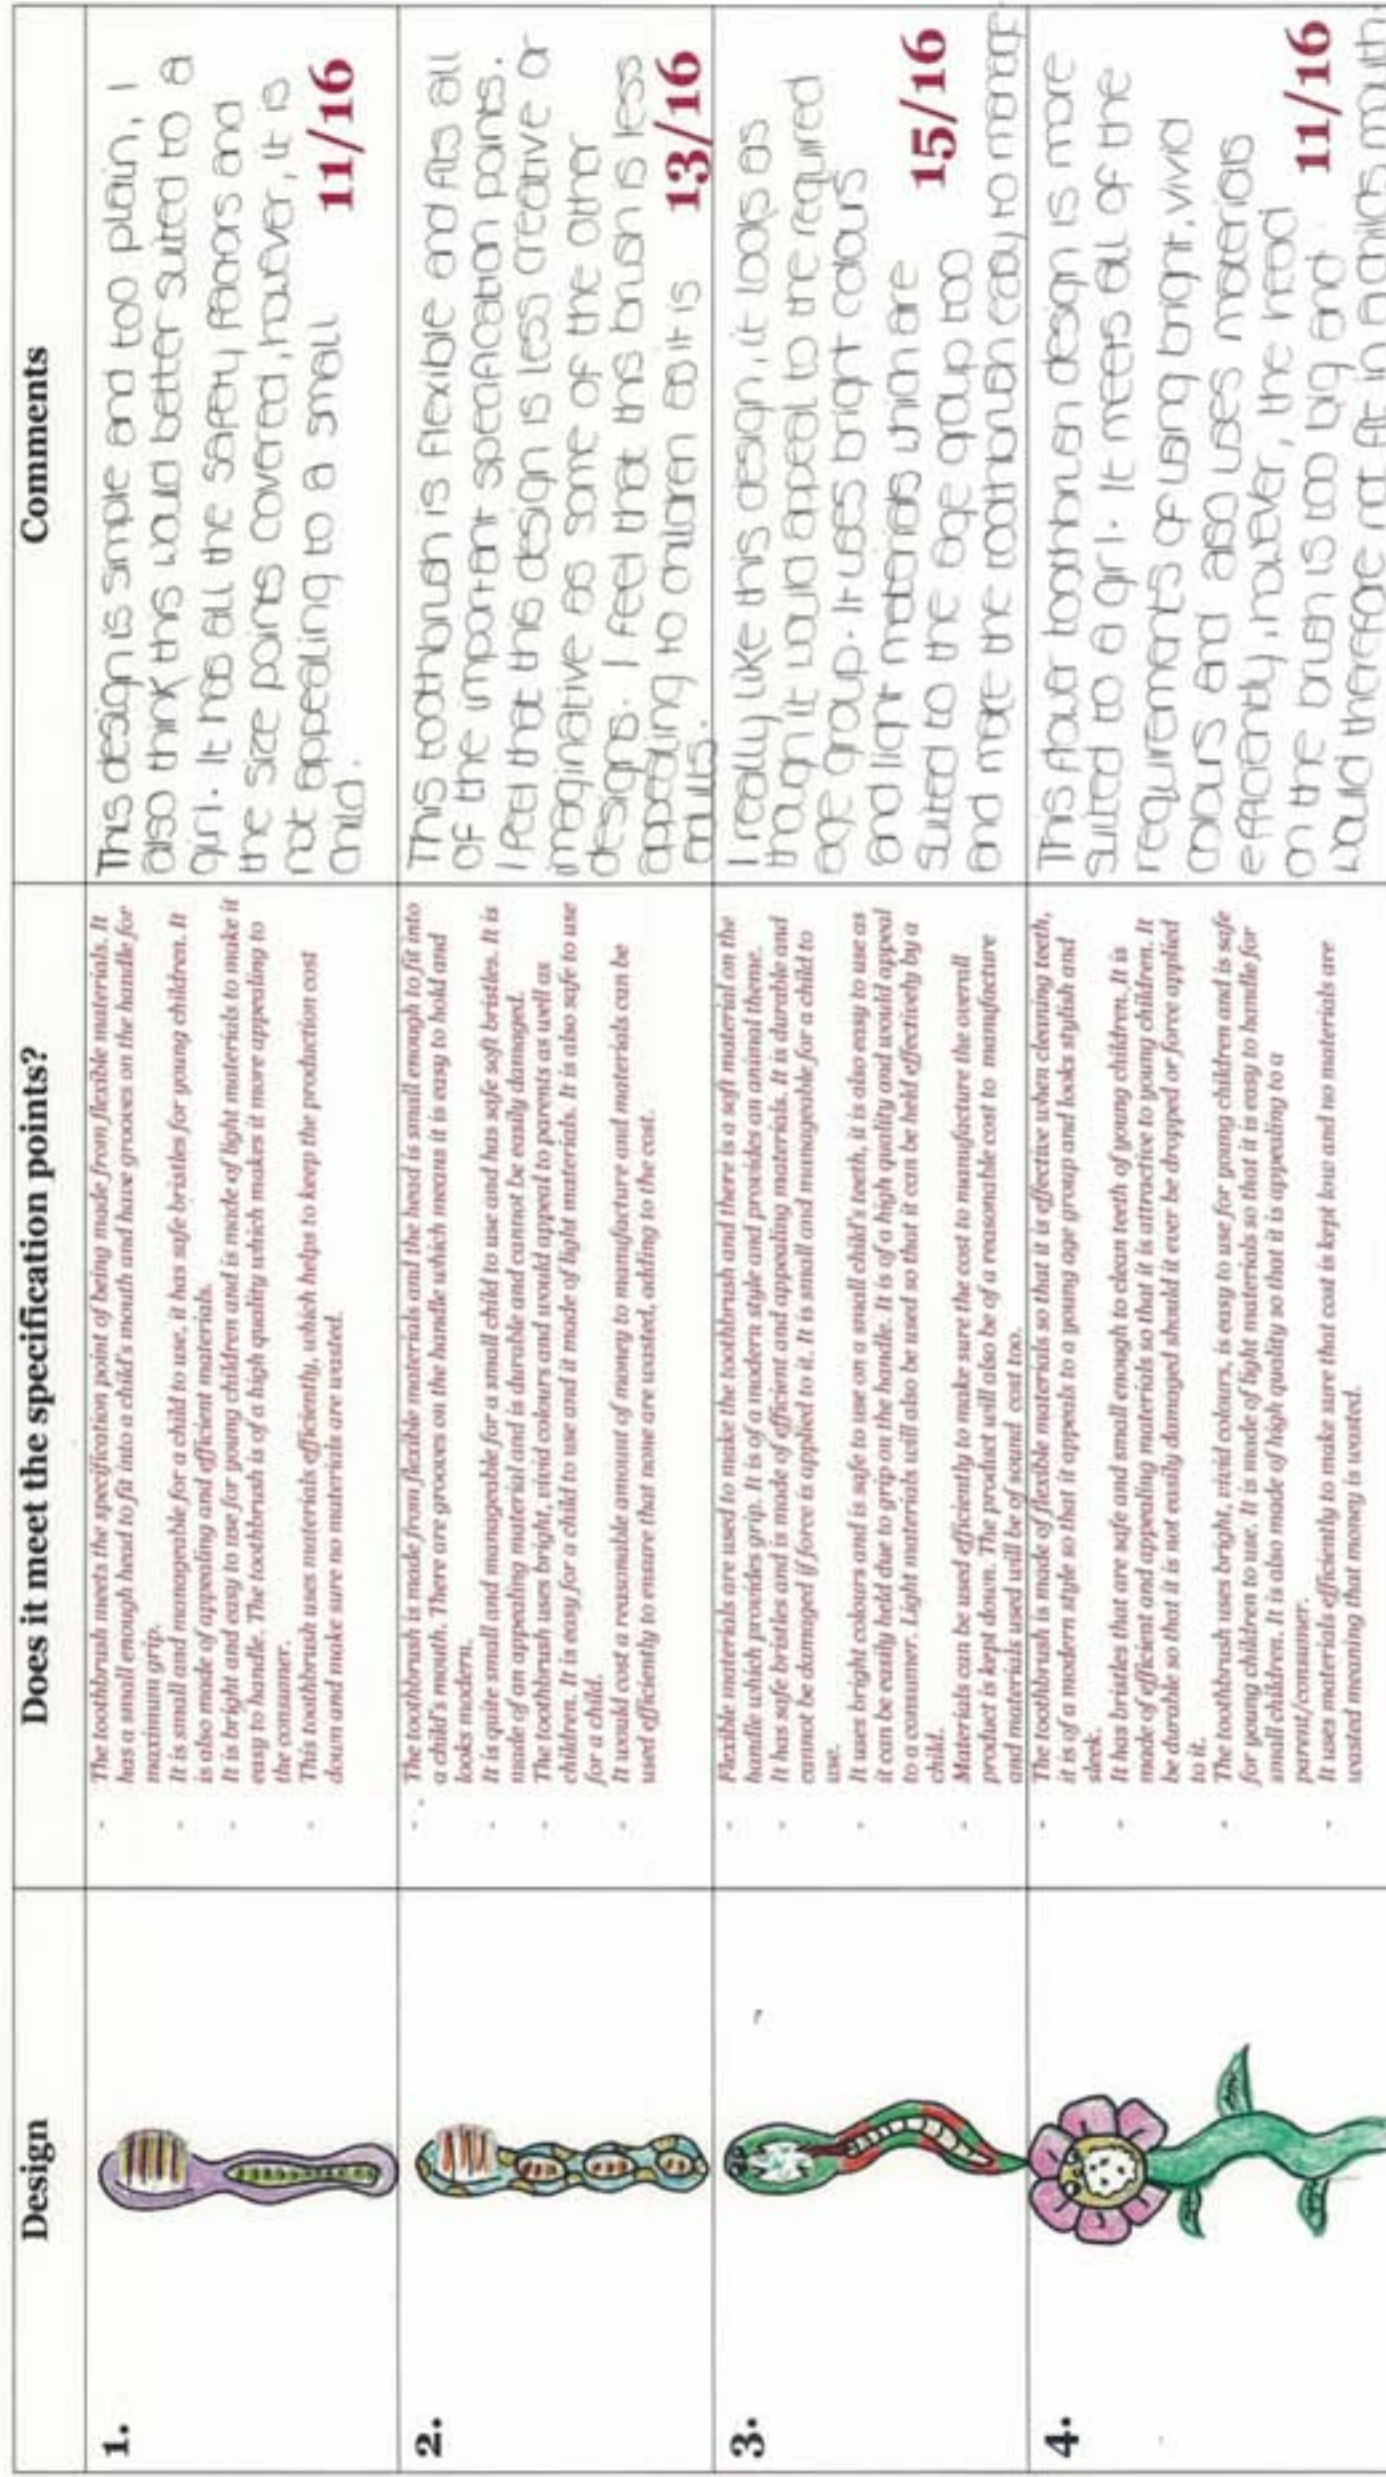 Design
Does it meet the specification points?
Comments
1.
- The toothbrush meets the specification point of being made from flexible materials. It
has a small enough head to fit into a child's mouth and have grooves on the handle for
maximum grip.
- It is small and manageable for a child to use, it has safe bristles for young children. It
is also made of appealing and efficient materials.
- It is bright and easy to use for young children and is made of light materials to make it
easy to handle. The toothbrush is of a high quality which makes it more appealing to
the consumer.
- This toothbrush uses materials efficiently, which helps to keep the production cost
down and make sure no materials are wasted.
This design is simple and too plain, I
also think this would better suited to a
girl. It has all the safety factors and
the size points covered, however, it is
not appealing to a small
child.
11/16
2.
- The toothbrush is made from flexible materials and the head is small enough to fit into
a child's mouth. There are grooves on the handle which means it is easy to hold and
looks modern.
- It is quite small and manageable for a small child to use and has safe soft bristles. It is
made of an appealing material and is durable and cannot be easily damaged.
- The toothbrush uses bright, vivid colours and would appeal to parents as well as
children. It is easy for a child to use and it made of light materials. It is also safe to use
for a child.
- It would cost a reasonable amount of money to manufacture and materials can be
used efficiently to ensure that none are wasted, adding to the cost.
This toothbrush is flexible and fits all
of the important specification points.
I feel that this design is less creative or
imaginative as some of the other
designs. I feel that this brush is less
appealing to children as it is
adults.
13/16
3.
- Flexible materials are used to make the toothbrush and there is a soft material on the
handle which provides grip. It is of a modern style and provides an animal theme.
- It has safe bristles and is made of efficient and appealing materials. It is durable and
cannot be damaged if force is applied to it. It is small and manageable for a child to
use.
- It uses bright colours and is safe to use on a small child's teeth, it is also easy to use as
it can be easily held due to grip on the handle. It is of a high quality and would appeal
to a consumer. Light materials will also be used so that it can be held effectively by a
child.
- Materials can be used efficiently to make sure the cost to manufacture the overall
product is kept down. The product will also be of a reasonable cost to manufacture
and materials used will be of sound cost too.
I really like this design, it looks as
though it would appeal to the required
age group. It uses bright colours
and light materials which are
suited to the age group too
and make the toothbrush easy to manage
15/16
4.
- The toothbrush is made of flexible materials so that it is effective when cleaning teeth,
it is of a modern style so that it appeals to a young age group and looks stylish and
sleek.
- It has bristles that are safe and small enough to clean teeth of young children. It is
made of efficient and appealing materials so that it is attractive to young children. It
be durable so that it is not easily damaged should it ever be dropped or force applied
to it.
- The toothbrush uses bright, vivid colours, is easy to use for young children and is safe
for young children to use. It is made of light materials so that it is easy to handle for
small children. It is also made of high quality so that it is appealing to a
parent/consumer.
- It uses materials efficiently to make sure that cost is kept low and no materials are
wasted meaning that money is wasted.
This flower toothbrush design is more
suited to a girl. It meets all of the
requirements of using bright, vivid
colours and also uses materials
efficiently, however, the head
on the brush is too big and
would therefore not fit in a childs mouth.
11/16